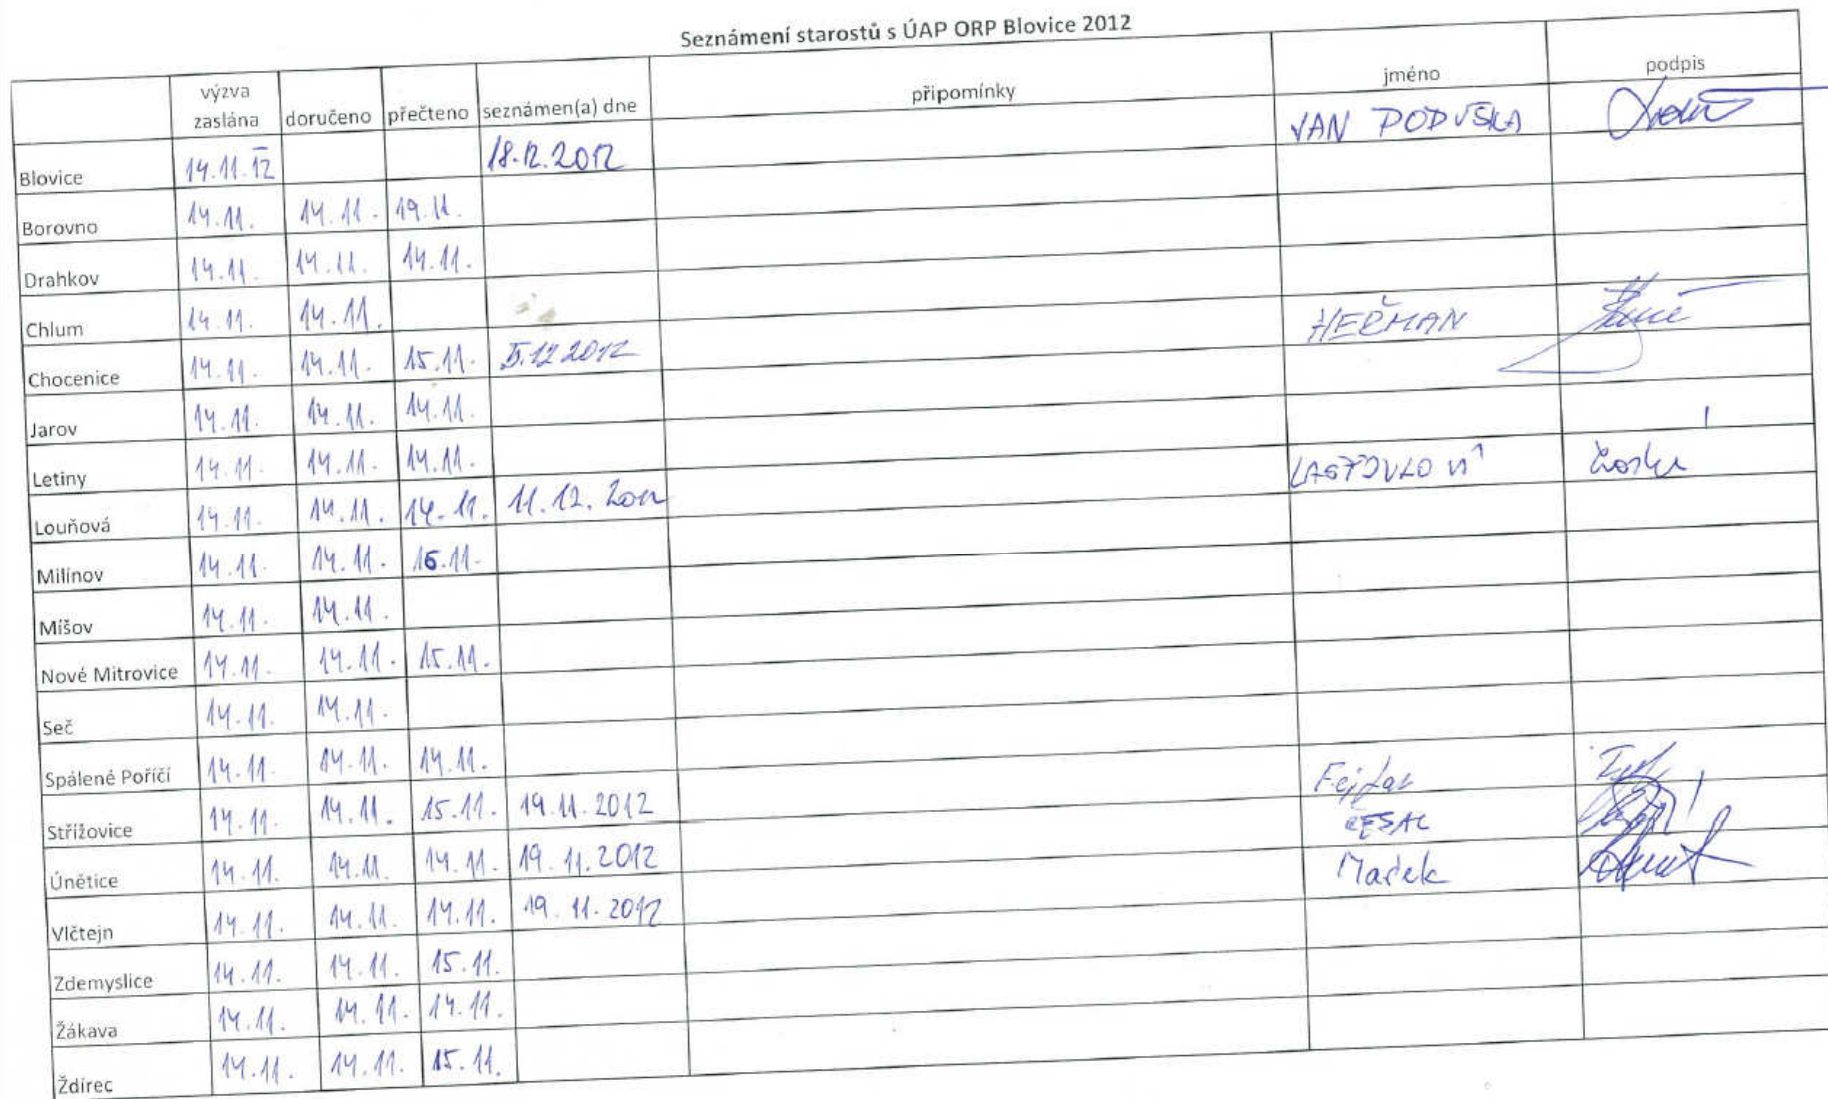 Seznámení starostů s ÚAP ORP Blovice 2012
výzva zaslána doručeno přečteno seznámen(a) dne připomínky jméno podpis
Blovice 14.11.12 18.12.2012 JAN PODUŠKA
Borovno 14.11. 14.11. 19.11.
Drahkov 14.11. 14.11. 14.11.
Chlum 14.11. 14.11.
Chocenice 14.11. 14.11. 15.11. 5.12 2012 HEŘMAN
Jarov 14.11. 14.11. 14.11.
Letiny 14.11. 14.11. 14.11.
Louňová 14.11. 14.11. 14.11. 11.12. 2012
Milínov 14.11. 14.11. 16.11.
Míšov 14.11. 14.11.
Nové Mitrovice 14.11. 14.11. 15.11.
Seč 14.11. 14.11.
Spálené Poříčí 14.11. 14.11. 14.11.
Střížovice 14.11. 14.11. 15.11. 19.11.2012
Únětice 14.11. 14.11. 14.11. 19.11.2012
Vlčtejn 14.11. 14.11. 14.11. 19.11.2012
Zdemyslice 14.11. 14.11. 15.11.
Žákava 14.11. 14.11. 14.11.
Ždírec 14.11. 14.11. 15.11.